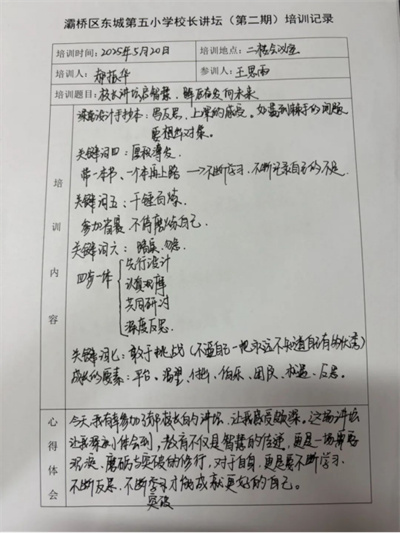 灞桥区东城第五小学校长讲坛（第二期）培训记录
培训时间：2025年5月20日 培训地点：二楼会议室
培训人：郝振华 参训人：王思雨
培训题目：校长讲坛启智慧，
培训内容
课题设计手抄本：写反思，上课的感受，
要想对策。
关键词四：厚积薄发
带一本书、一个本再上路 → 不断学习，不断记录自己的不足
关键词五：千锤百炼
参加赛 不停磨炼自己
关键词六：
四步一体
先行设计
认真观摩
共同研讨
深度反思
关键词七：敢于挑战（不逼自己一把永远不知道自己有多优秀）
成长的要素：平台、渴望、伯乐、团队、机遇、反思。
心得体会
今天我有幸参加了郝校长的讲坛，让我感受颇深。这场讲坛
让我深刻体会到，教育不仅是智慧的传递，更是一场
磨砺与突破的修行，对于自身，更是要不断学习，
不断反思，不断突破才能成就更好的自己。